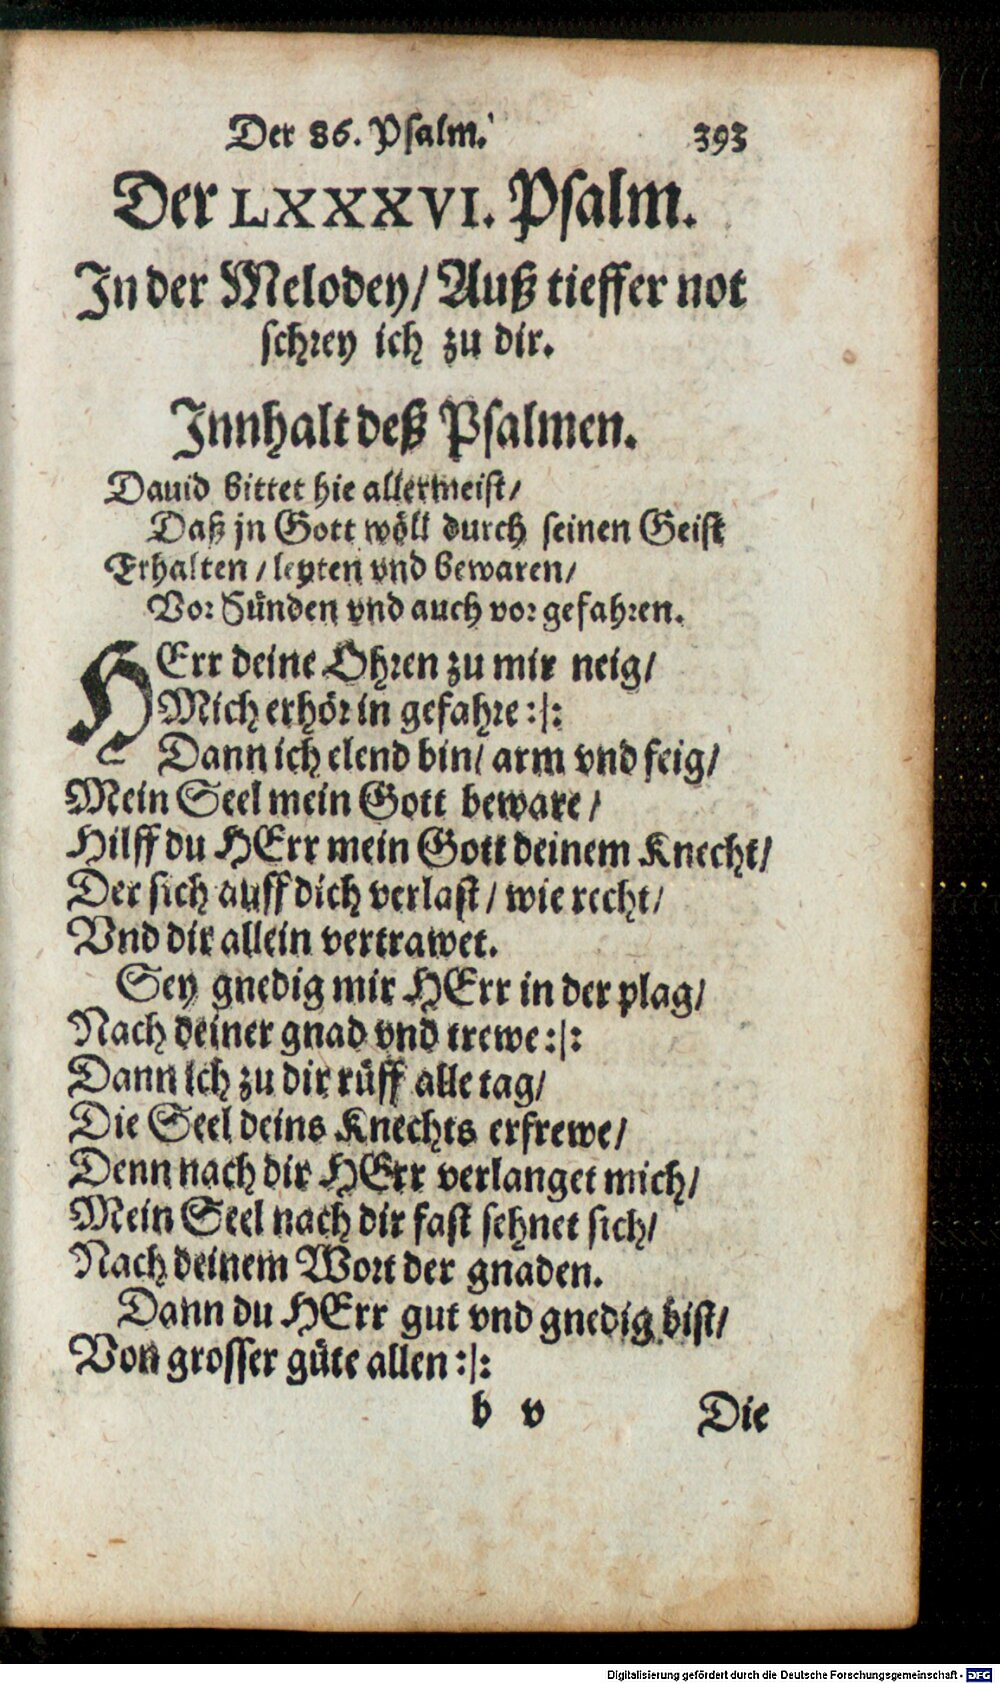 Der 86. Psalm. 393
Der LXXXVI. Psalm.
In der Melodey/ Auß tieffer not
schrey ich zu dir.
Innhalt deß Psalmen.
Dauid bittet hie allermeist/
Daß jn Gott wöll durch seinen Geist
Erhalten / leyten vnd bewaren/
Vor Sünden vnd auch vor gefahren.
HErr deine Ohren zu mir neig/
Mich erhör in gefahre :|:
Dann ich elend bin/ arm vnd feig/
Mein Seel mein Gott beware /
Hilff du HErr mein Gott deinem Knecht/
Der sich auff dich verlast / wie recht/
Vnd dir allein vertrawet.
Sey gnedig mir HErr in der plag/
Nach deiner gnad vnd trewe :|:
Dann ich zu dir rüff alle tag/
Die Seel deins Knechts erfrewe/
Denn nach dir HErr verlanget mich/
Mein Seel nach dir fast sehnet sich/
Nach deinem Wort der gnaden.
Dann du HErr gut vnd gnedig bist/
Von grosser güte allen :|:
b v Die
Digitalisierung gefördert durch die Deutsche Forschungsgemeinschaft - DFG